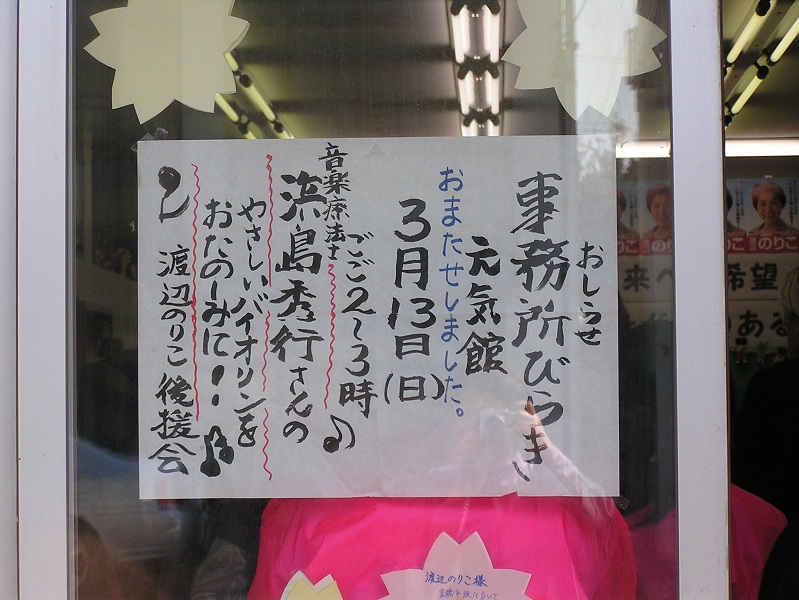 おしらせ
事務所びらき
元気館
おまたせしました。
3月13日(日)
ごご2〜3時
音楽療法士
浜島秀行さんの
やさしいバイオリンを
おたのしみに！
渡辺のりこ後援会
のりこ
のりこ
来へ
希望
ある
渡辺のりこ様